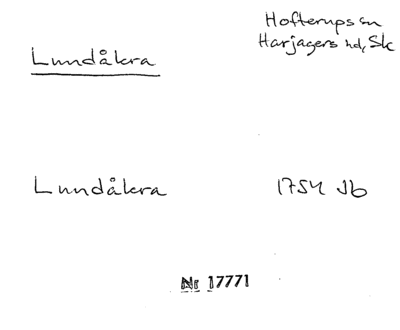 Hofterups sn
Lundåkra Harjagers hd, Sk
Lundåkra 1754 Jb
Nr 17771